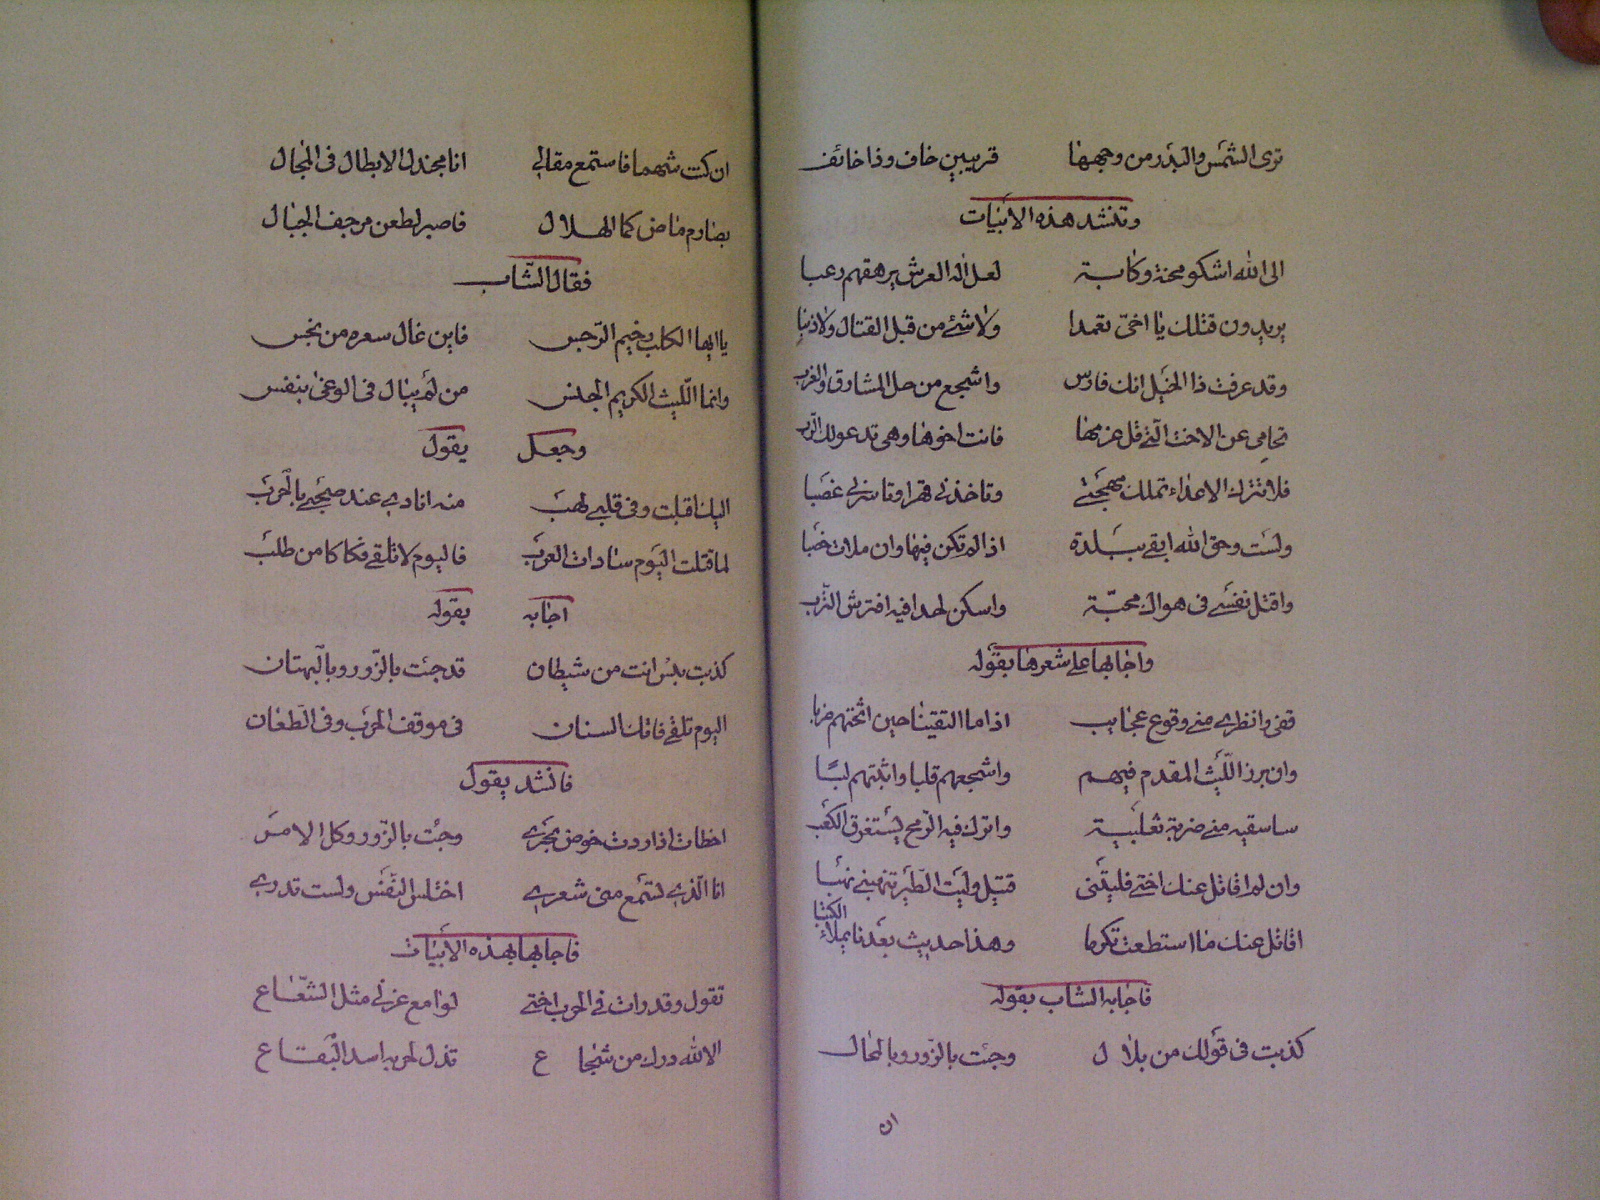 ترى الشمس والبدر من وجهها قريبين خاف وذا خائف
وتنشد هذه الأبيات
الى الله اشكو محنة وكابة لعل اله العرش يرهقهم رعبا
يريدون قتلك يا اخي تعمدا ولا شئ من قبل القتال ولا ذنبا
وقد عرفت ذا الخيل انك فارس واشجع من حل المشارق والغرب
تحامي عن الاخت التي قل عزمها فانت اخوها وهي تدعو لك الرب
فلا تترك الاعداء تملك مهجتي وتاخذني قهرا وتاسرني غصبا
ولست وحق الله ابقى ببلدة اذا لم تكن فيها وان ملات خبا
واقتل نفسي في هواك محبة واسكن لحدا فيه افترش التربا
واجابها على شعرها بقوله
قفي وانظري مني وقوع عجايب اذا ما التقينا حين اثخنهم ضربا
وان برز الليث المقدم فيهم واشجعهم قلبا واثبتهم لبا
ساسقيه مني ضربة ثعلبية واترك فيه الرمح يستغرق الكعب
وان لم اقاتل عنك اختي فليتني قتيل وليت الطير تنهبني نهبا
اقاتل عنك ما استطعت تكرما وهذا حديث بعدنا يملاء الكتبا
فاجابه الشاب بقوله
كذبت في قولك من بلا ل وجئت بالزور وبالمحال
ان
ان كت شهما فاستمع مقالي انا مجندل الابطال في المجال
بصارم ماض كما الهلال فاصبر لطعن مرجف الجبال
فقال الشاب
يا ايها الكلب وخيم الرجس فاين غال سعره من بخس
وانما الليث الكريم الجنس من لم يبال في الوغى بنفس
وجعل يقول
اليك اقبلت وفي قلبي لهب منه انادي عند صحبي بالحرب
لما قتلت اليوم سادات العرب فاليوم لا تلقى فكاكا من طلب
اجابه بقوله
كذبت بئس انت من شيطان قد جئت بالزور وبالبهتان
اليوم تلقى فاتك السنان في موقف الحرب وفي الطعان
فانشد يقول
اخطات اذا ردت خوض بحري وجئت بالزور وكل الامر
انا الذي لتسمع مني شعري اختلس النفس ولست تدري
فاجابها بهذه الأبيات
تقول وقد رات في الحرب اختي لوامع غرتي مثل الشعاع
الا لله درك من شجا ع تذل لحربه اسد البقاع